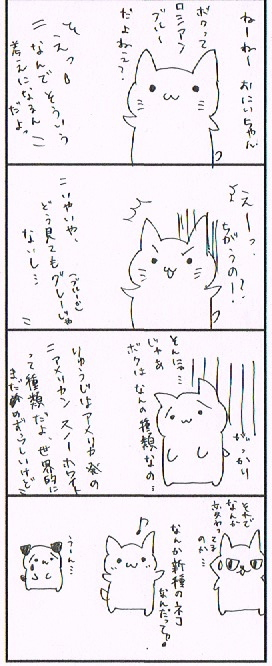 ねーねー おにいちゃん
ボクって
ロシアン
ブルー
だよねぇ?
そぇっ
なんでそういう
考えになるん
だよっ
えーっ、
ちがうの!?
いやいや、
どう見てもグレーじゃ
(ブルーの)
ないし…
がっかり
そんにゃ…
じゃあ
ボクはなんの種類なの…
りゅうじはアメリカ発の
アメリカンスノーホワイト
って種類だよ、世界的に
まだめずらしいけど
それで
なんか
変わってる
のか…
なんか新種のネコ
なんだって♪
うーん…